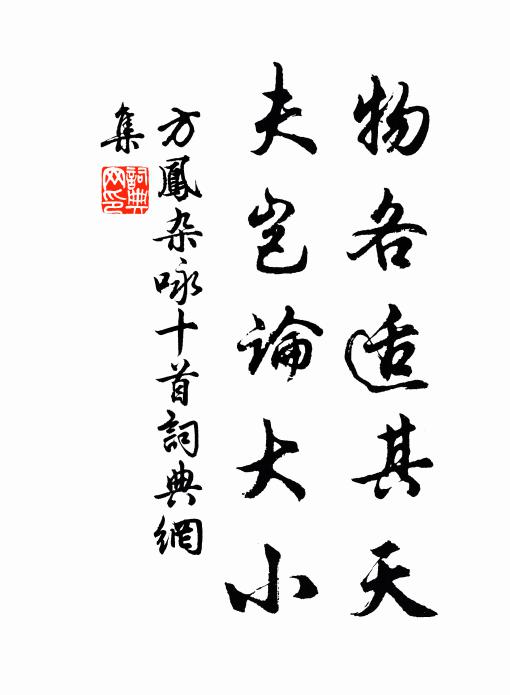 物各适其天
夫岂論大小
方鳳杂咏十首詞典網
集
詞典
网印